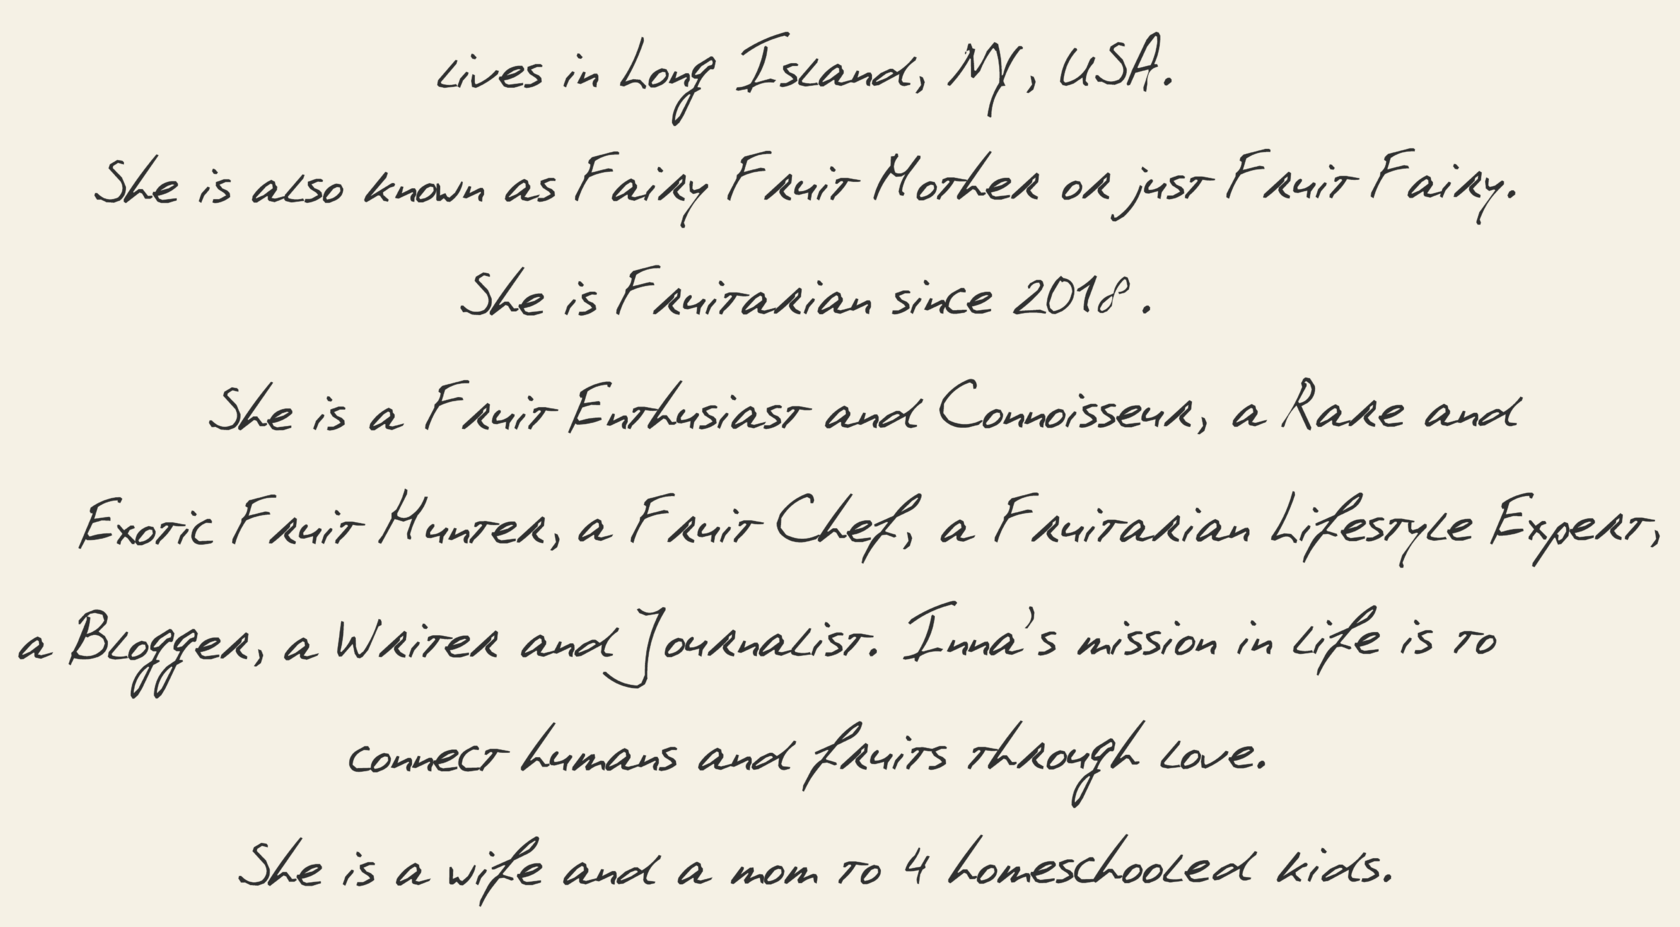 Lives in Long Island, NY, USA.
She is also known as Fairy Fruit Mother or just Fruit Fairy.
She is Fruitarian since 2018.
She is a Fruit Enthusiast and Connoisseur, a Rare and
Exotic Fruit Hunter, a Fruit Chef, a Fruitarian Lifestyle Expert,
a Blogger, a Writer and Journalist. Inna's mission in life is to
connect humans and fruits through love.
She is a wife and a mom to 4 homeschooled kids.